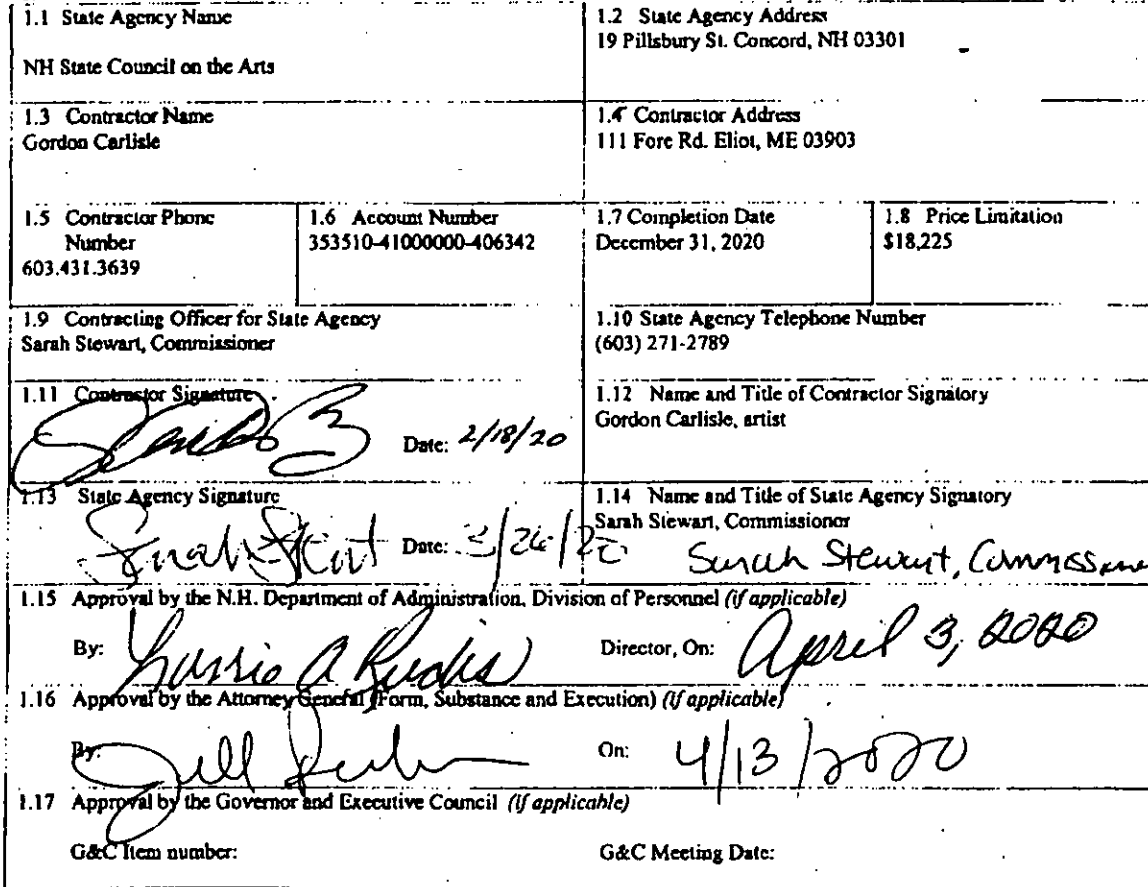 1.1 State Agency Name
NH State Council on the Arts
1.2 State Agency Address
19 Pillsbury St. Concord, NH 03301
1.3 Contractor Name
Gordon Carlisle
1.4 Contractor Address
111 Fore Rd. Eliot, ME 03903
1.5 Contractor Phone
Number
603.431.3639
1.6 Account Number
353510-41000000-406342
1.7 Completion Date
December 31, 2020
1.8 Price Limitation
$18,225
1.9 Contracting Officer for State Agency
Sarah Stewart, Commissioner
1.10 State Agency Telephone Number
(603) 271-2789
1.11 Contractor Signature
Date: 2/18/20
1.12 Name and Title of Contractor Signatory
Gordon Carlisle, artist
1.13 State Agency Signature
Date: 3/26/20
1.14 Name and Title of State Agency Signatory
Sarah Stewart, Commissioner
Sarah Stewart, Commissione
1.15 Approval by the N.H. Department of Administration, Division of Personnel (if applicable)
By:
Director, On: April 3, 2020
1.16 Approval by the Attorney General (Form, Substance and Execution) (if applicable)
By:
On: 4/13/2020
1.17 Approval by the Governor and Executive Council (if applicable)
G&C Item number:
G&C Meeting Date: